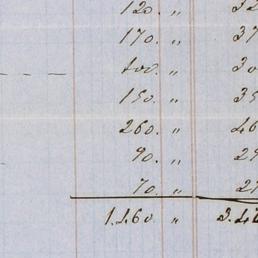 120. " 32
170. " 37
100. " 30
150. " 35
260. " 46
90. " 29
70. " 27
1.460 " 3.46